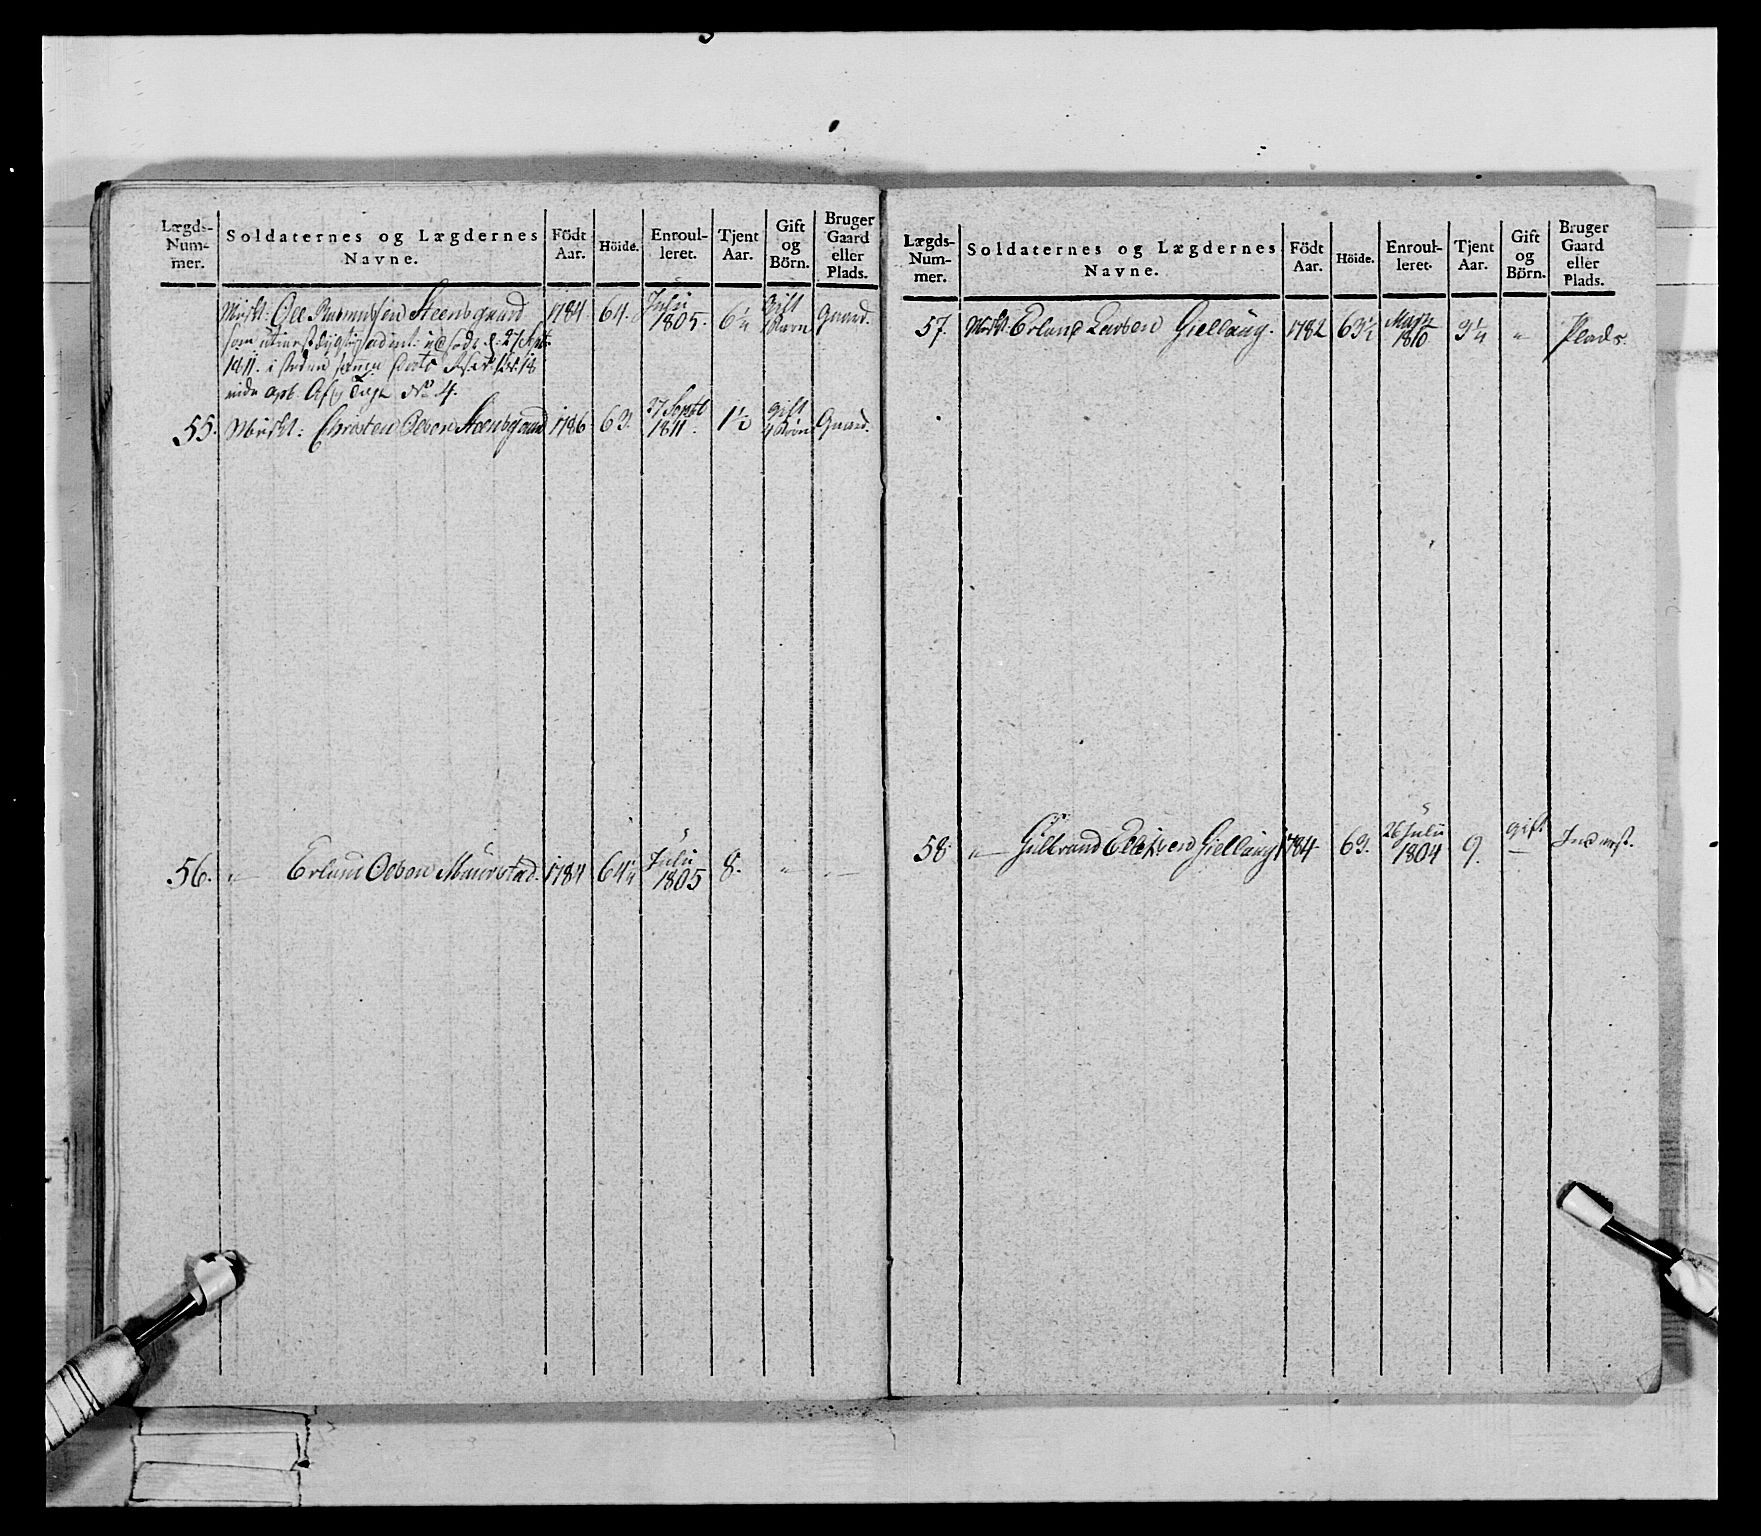 Lægds-Num-mer.
Soldaternes og Lægdernes Navne.
Födt Aar.
Höide.
Enroul-leret.
Tjent Aar.
Gift og Börn.
Bruger Gaard eller Plads.
Muskt: Ole Rasmussen Steensgaard 1784 64. Julii 1805. 6¼ gift Gaard.
1811. i
No 4.
55. Muskt: Christen Olsen Steensgaard 1786 63. 27 Septb 1811. 1½ gift Gaard.
56. " Erland Olsen Maurstad. 1784 64¼ Julii 1805 8. " —
Lægds-Num-mer.
Soldaternes og Lægdernes Navne.
Födt Aar.
Höide.
Enroul-leret.
Tjent Aar.
Gift og Börn.
Bruger Gaard eller Plads.
57. Muskt: Erland Larsen Giellaug. 1782 63½ 1810 3¼ " Plads.
58. " Gulbrand Giellaug 1784. 63. 26 Julii 1804 9. gift — Inderst.